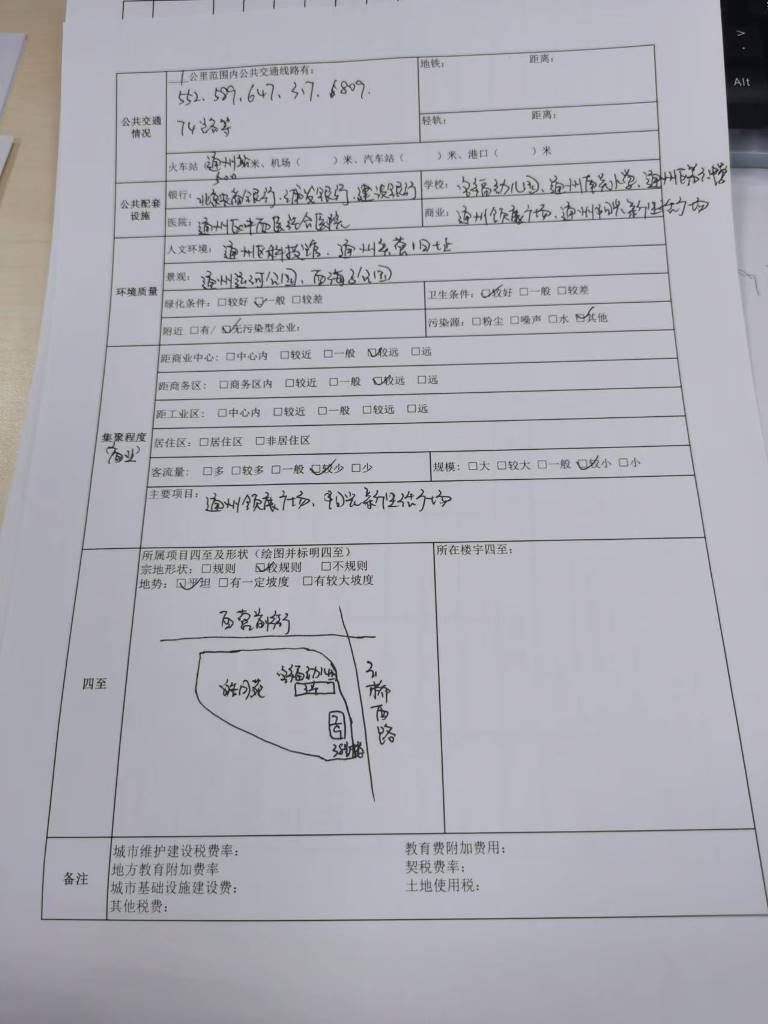 Alt
公共交通情况
1公里范围内公共交通线路有:
552、589、647、317、6809、
74路等
地铁: 距离:
轻轨: 距离:
火车站(通州站500)米、机场( )米、汽车站( )米、港口( )米
公共配套设施
银行: 建设银行
学校: 幼儿园、通州
医院: 通州区中西医结合医院
商业: 通州领展广场、新生活广场
环境质量
人文环境: 通州区科技馆、通州 旧址
景观: 通州运河公园、西海子公园
绿化条件: □较好 ☑一般 □较差
卫生条件: ☑较好 □一般 □较差
附近 □有/☑无污染型企业:
污染源: □粉尘 □噪声 □水 ☑其他
集聚程度
(商业)
距商业中心: □中心内 □较近 □一般 ☑较远 □远
距商务区: □商务区内 □较近 □一般 ☑较远 □远
距工业区: □中心内 □较近 □一般 □较远 □远
居住区: □居住区 □非居住区
客流量: □多 □较多 □一般 ☑较少 □少
规模: □大 □较大 □一般 ☑较小 □小
主要项目: 通州领展广场、 新生活广场
四至
所属项目四至及形状(绘图并标明四至)
宗地形状: □规则 ☑较规则 □不规则
地势: ☑平坦 □有一定坡度 □有较大坡度
所在楼宇四至:
西营前街
幼儿园
桥西路
备注
城市维护建设税费率:
教育费附加费用:
地方教育附加费率
契税费率:
城市基础设施建设费:
土地使用税:
其他税费: